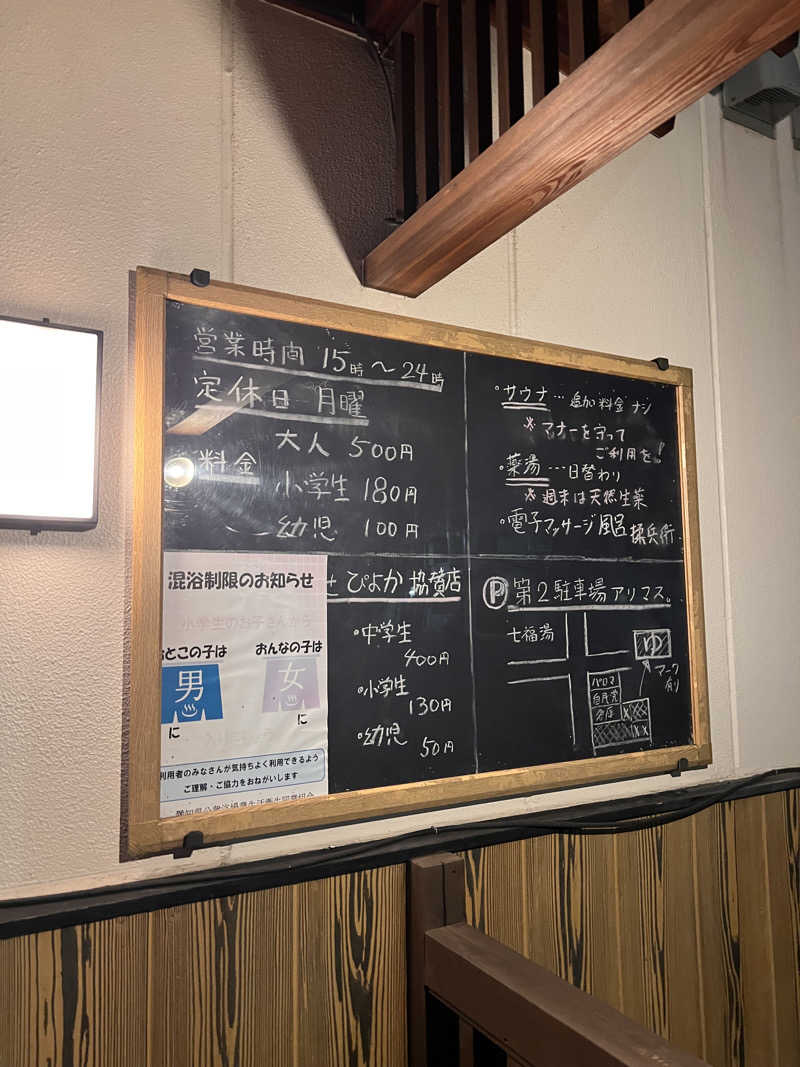 営業時間 15時～24時
定休日 月曜
料金
大人 500円
小学生 180円
幼児 100円
・サウナ…追加料金ナシ
※マナーを守って
ご利用を!
・薬湯…日替わり
※週末は天然生薬
・電子マッサージ風呂 揉兵衛
混浴制限のお知らせ
小学生のお子さんから
おとこの子は
男
に
おんなの子は
女
に
利用者のみなさんが気持ちよく利用できるよう
ご理解・ご協力をおねがいします
愛知県公衆浴場生活衛生同業組合
ぴよか 協賛店
・中学生
400円
・小学生
130円
・幼児
50円
P 第2駐車場アリマス。
七福湯
ゆ
マーク
有り
パロマ
自民党